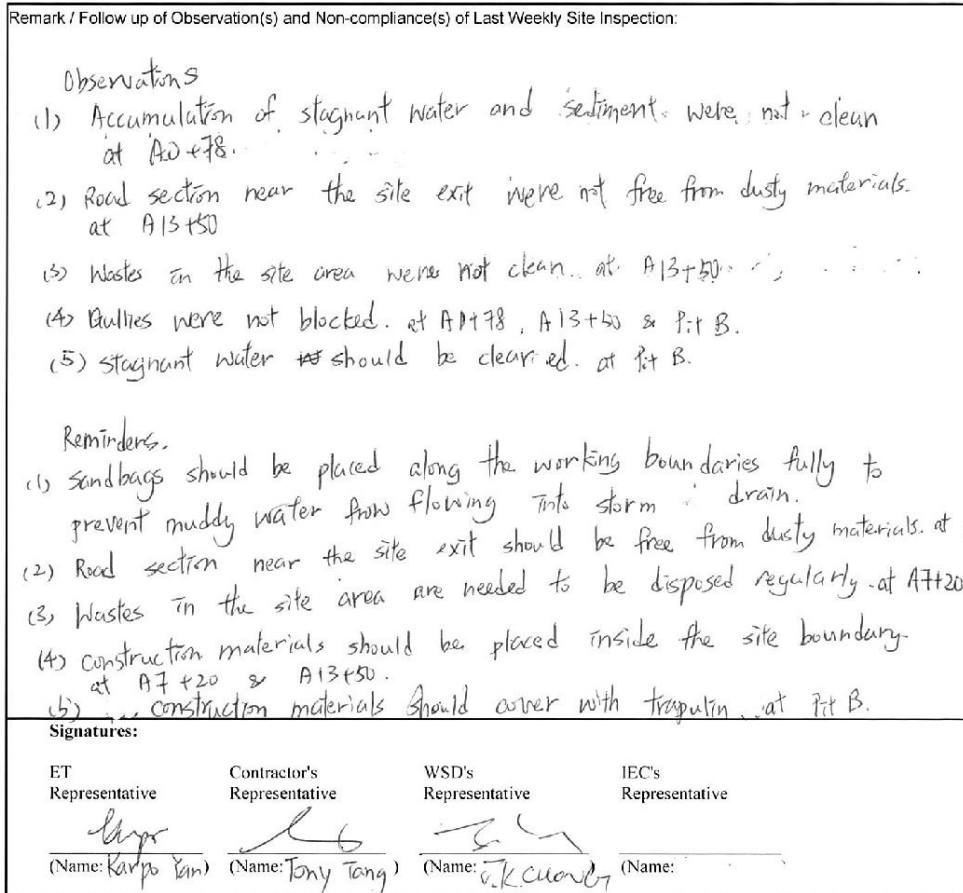 Remark / Follow up of Observation(s) and Non-compliance(s) of Last Weekly Site Inspection:
Observations
(1) Accumulation of stagnant water and sediment were not clean
at A0+78.
(2) Road section near the site exit were not free from dusty materials.
at A13+50
(3) Wastes in the site area were not clean. at A13+50
(4) Gullies were not blocked. at A0+78, A13+50 & Pit B.
(5) stagnant water should be cleaned. at Pit B.
Reminders.
(1) Sandbags should be placed along the working boundaries fully to
prevent muddy water from flowing into storm drain.
(2) Road section near the site exit should be free from dusty materials. at
(3) Wastes in the site area are needed to be disposed regularly. at A7+20
(4) construction materials should be placed inside the site boundary.
at A7+20 & A13+50.
(5) construction materials should cover with trapulin at Pit B.
Signatures:
ET Contractor's WSD's IEC's
Representative Representative Representative Representative
(Name: Karpo Yan) (Name: Tony Tang) (Name: (Name: